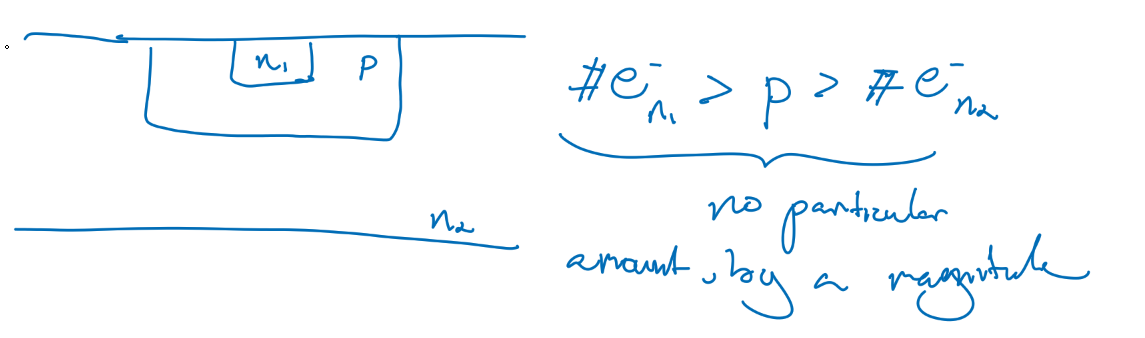 n₁ p
#e⁻ₙ₁ > p > #e⁻ₙ₂
no particular
n₂
amount, by a magnitude